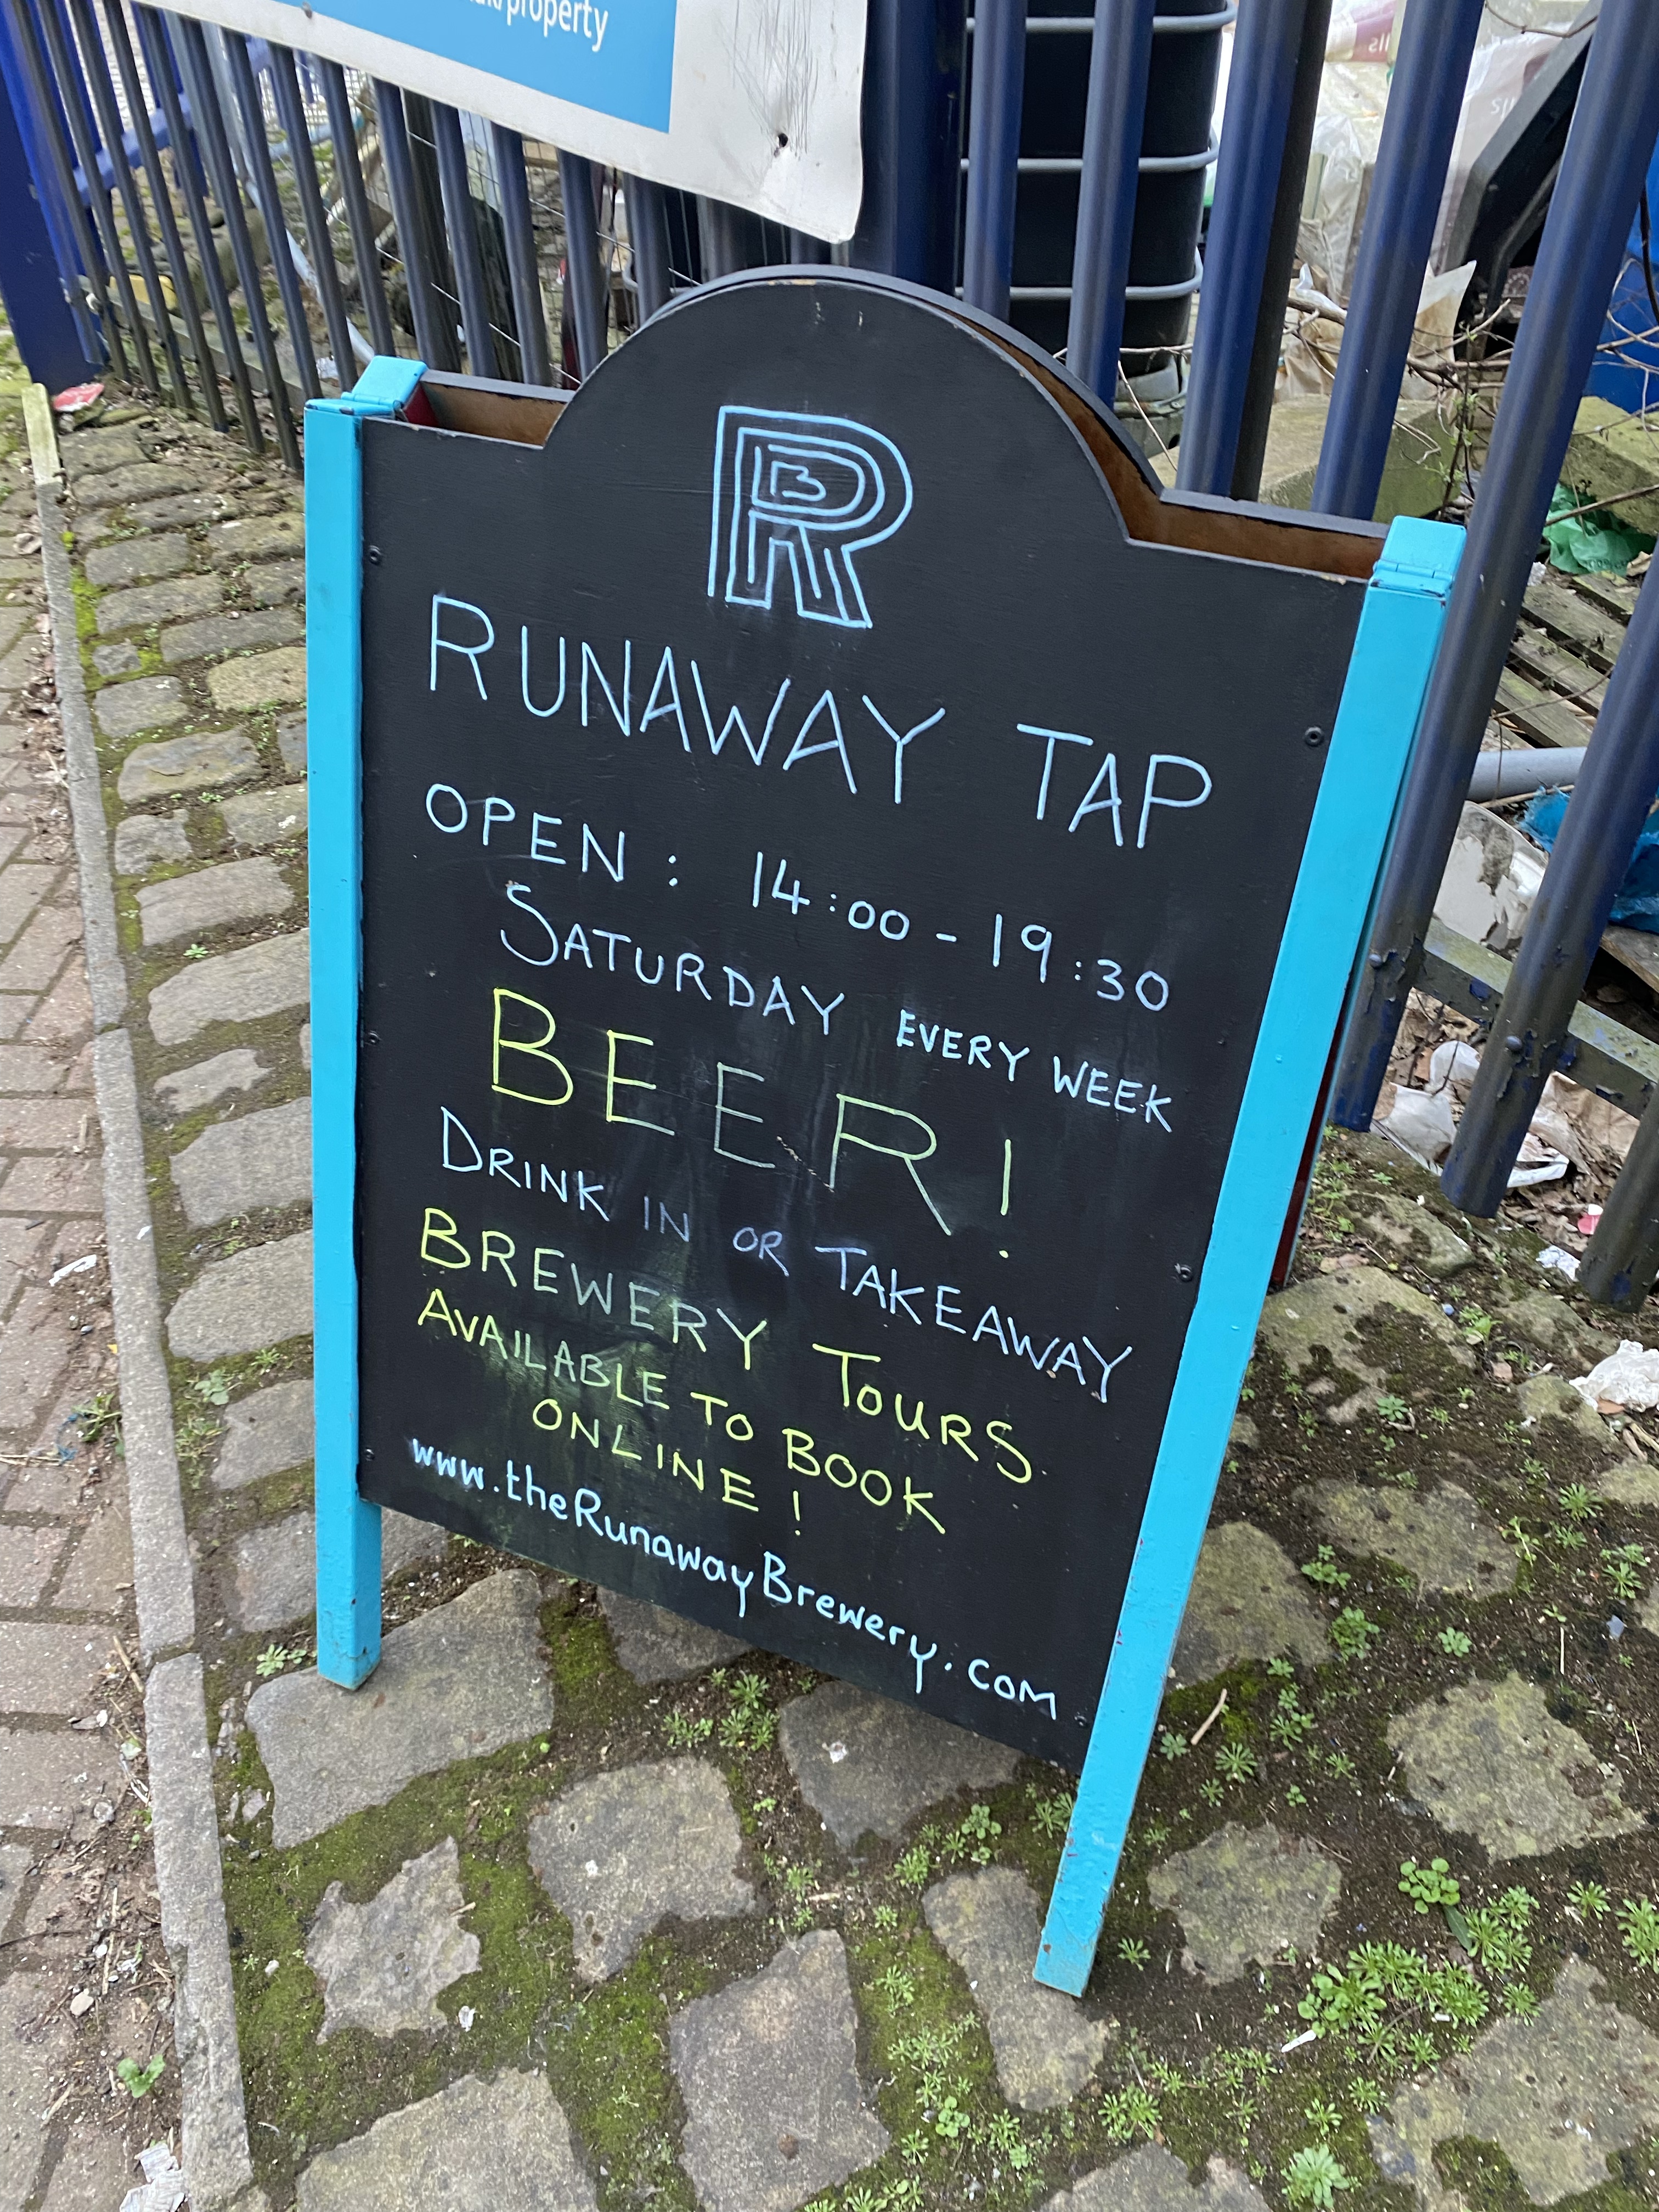 /property
RB
RUNAWAY TAP
OPEN: 14:00 - 19:30
SATURDAY EVERY WEEK
BEER!
DRINK IN OR TAKEAWAY
BREWERY TOURS
AVAILABLE TO BOOK
ONLINE!
www.theRunawayBrewery.com